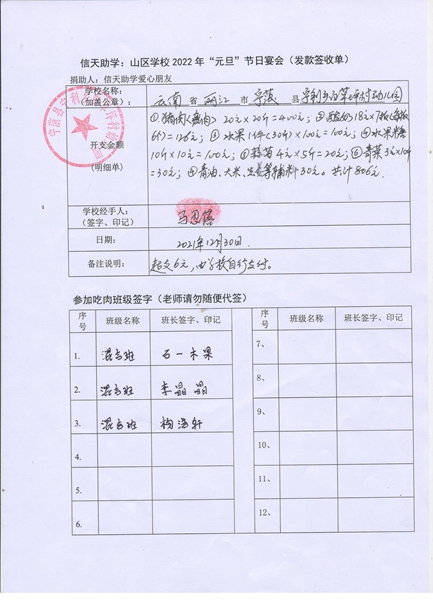 信天助学：山区学校 2022 年“元旦”节日宴会（发款签收单）
捐助人：信天助学爱心朋友
学校名称：
（加盖公章）：
云南省 丽江市 宁蒗县
开支金额
（明细单）
①猪肉 20元×20斤=400元；②
=126元；③水果1件(30斤)×100元=100元；④水果糖
10斤×10元=100元；⑤蒜苗4元×5斤=20元；⑥青菜3元×10斤
=30元；⑦香油、大米、生姜等辅料30元。共计806元。
学校经手人：
（签字、印记）
日期：
2021年12月30日.
备注说明：
超支6元，由学校自行支付。
参加吃肉班级签字（老师请勿随便代签）
序号 班级名称 班长签字、印记 序号 班级名称 班长签字、印记
1. 混合班 石一木果 7、
2. 混合班 李晶晶 8、
3. 混合班 杨浩轩 9、
4. 10、
5. 11、
6. 12、